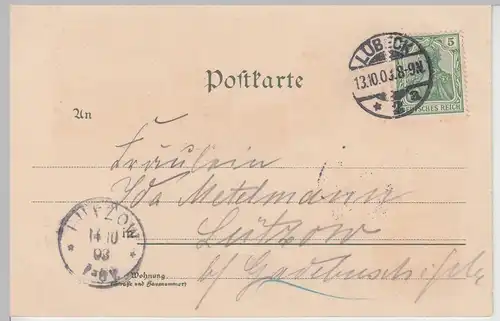 LÜBECK
13.10.03.8-9N.
* 2 a
5
DEUTSCHES REICH
Postkarte
An
Fräulein
Ida Meltmann
Lützow
b/ Gadebusch
LÜTZOW
14 10
03
Wohnung
(Straße und Hausnummer)